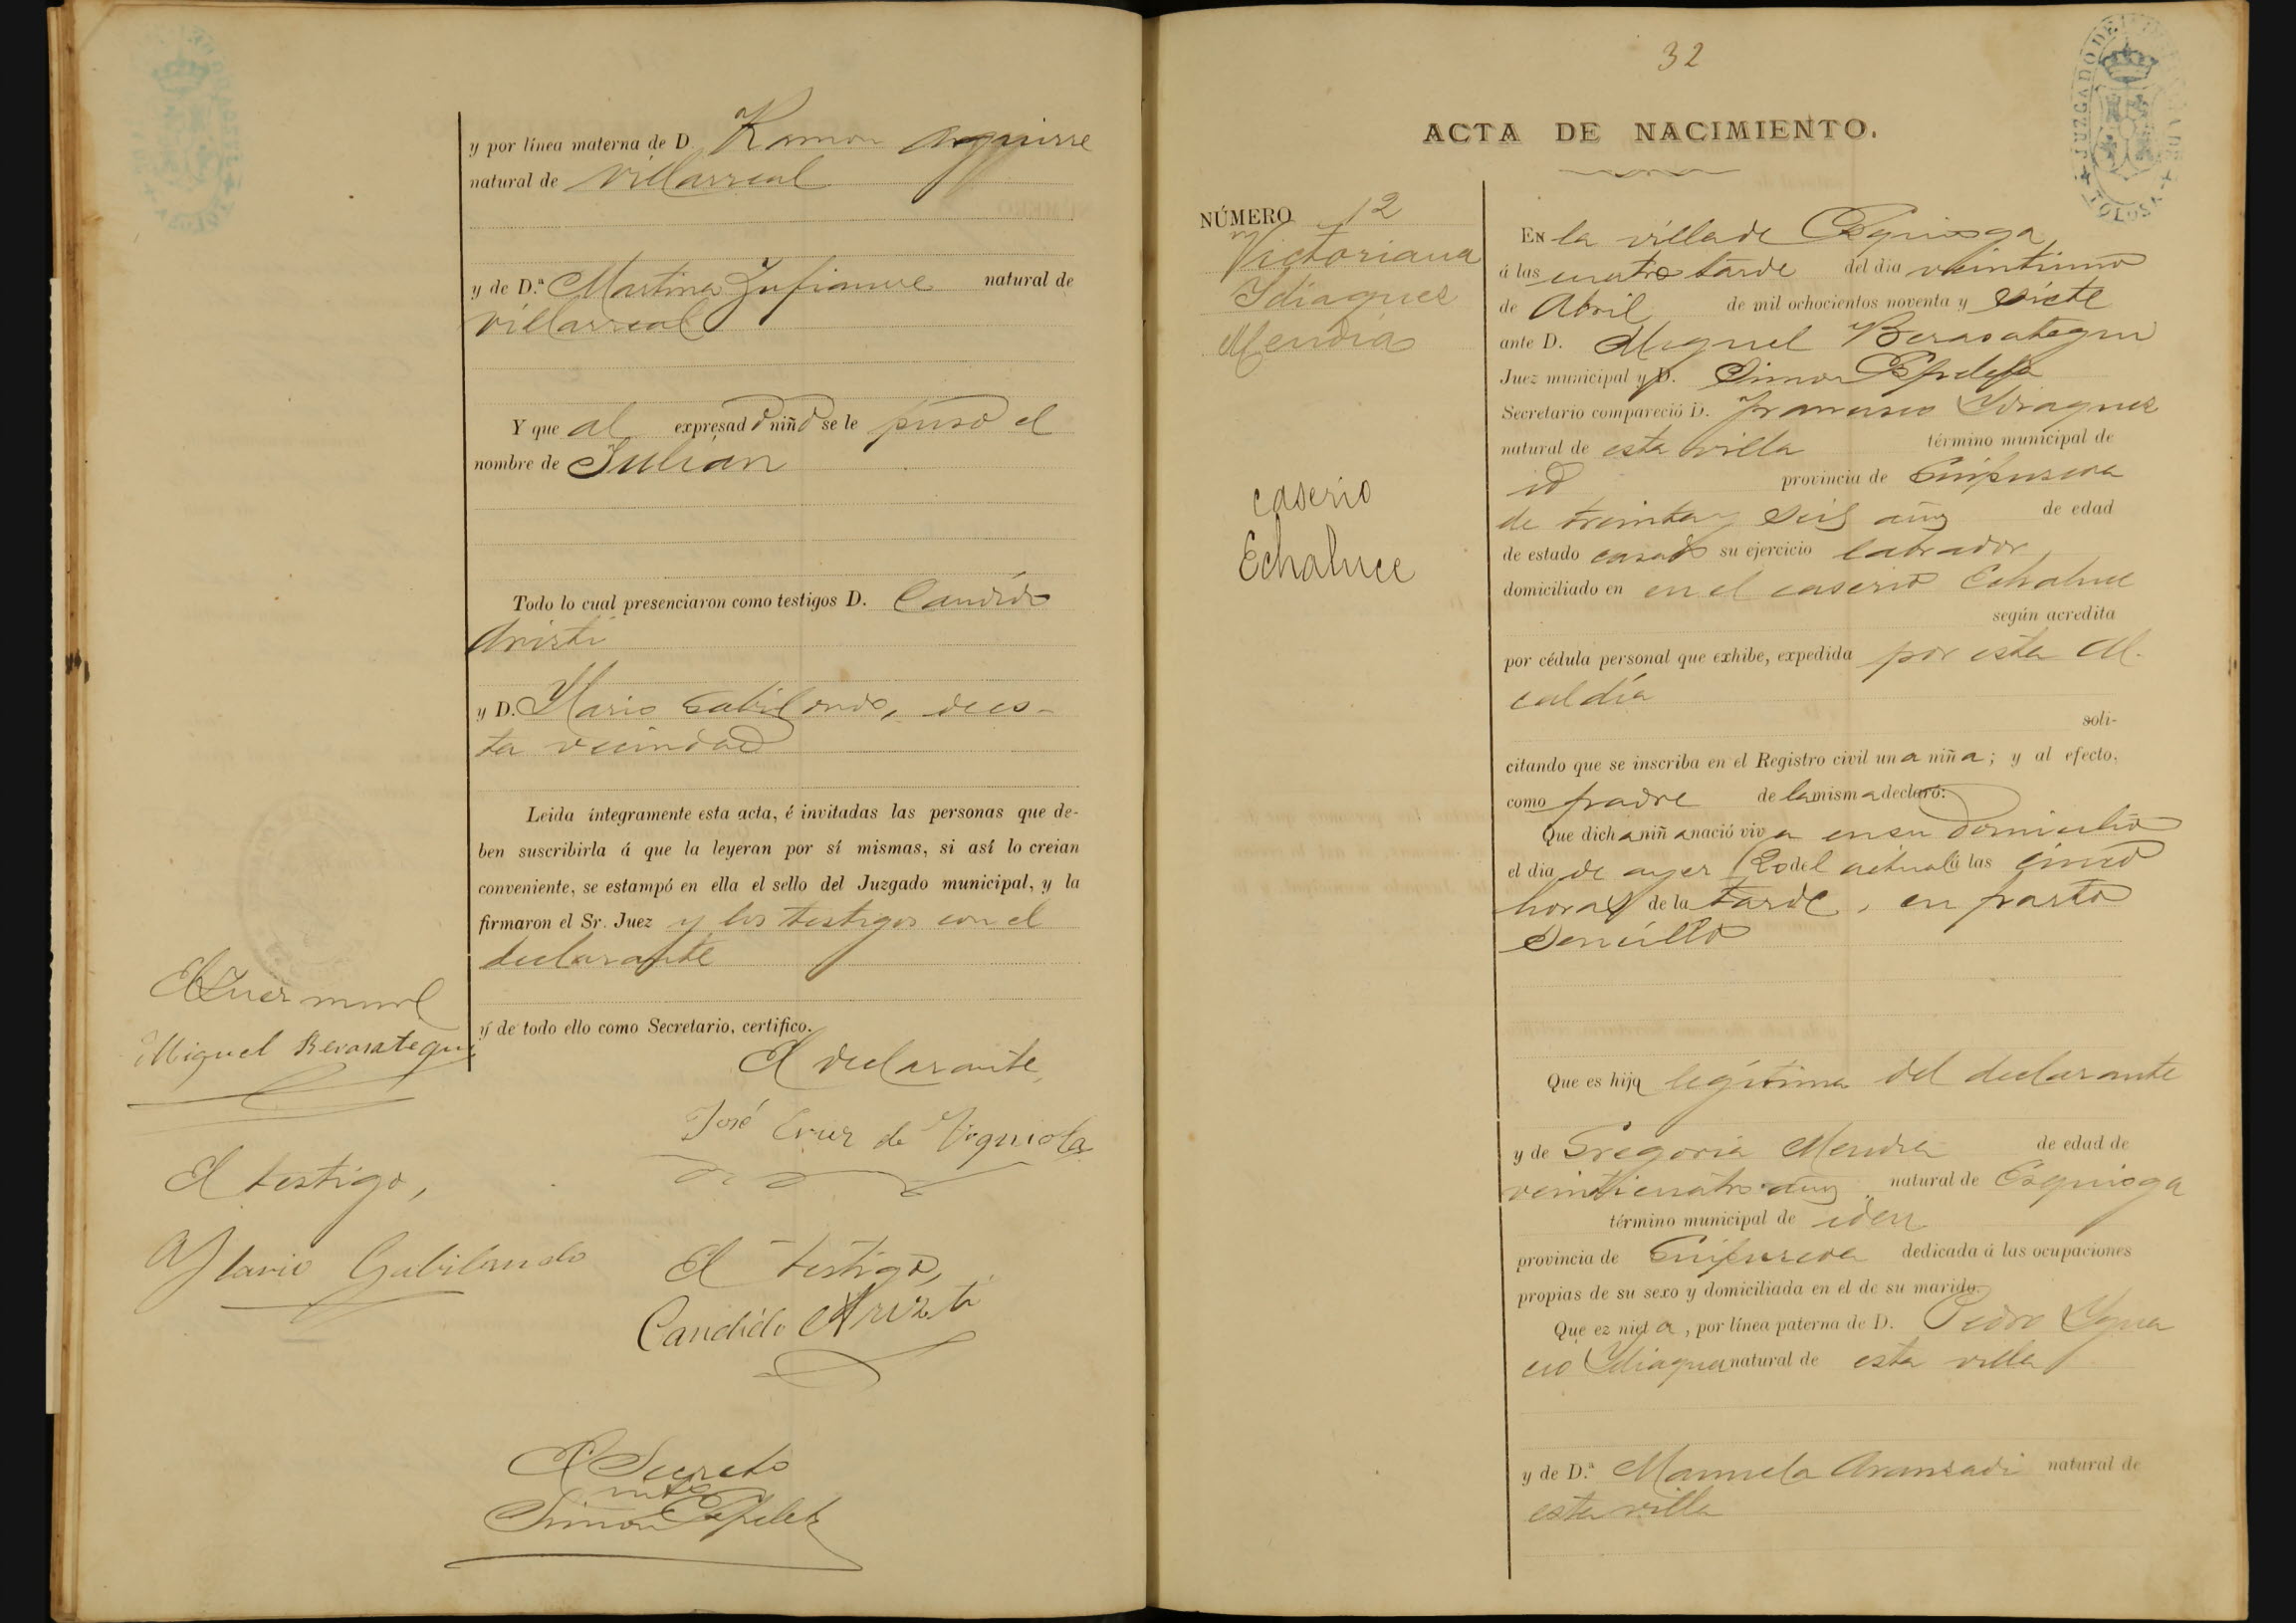 y por línea materna de D. Ramon Aguirre
natural de Villarreal
y de D.ª Martina Zufiaurre natural de
Villarreal
Y que al expresado niño se le puso el
nombre de Julián
Todo lo cual presenciaron como testigos D. Candido
Arizti
y D. Ylario Gabilondo, de es-
ta vecindad
Leida íntegramente esta acta, é invitadas las personas que de-
ben suscribirla á que la leyeran por sí mismas, si así lo creian
conveniente, se estampó en ella el sello del Juzgado municipal, y la
firmaron el Sr. Juez y los testigos con el
declarante
y de todo ello como Secretario, certifico.
El Juez munl
Miguel Berasategui
El declarante,
José Cruz de Yrguiola
El testigo,
Ylario Gabilondo
El testigo,
Candido Arizti
El Secreto
Simon
32
ACTA DE NACIMIENTO.
JUZGADO DE
TOLOSA
NÚMERO 12
Victoriana
Idiaquez
Mendia
caserio
Echaluce
En la villa de Ezquioga
á las cuatro tarde del dia veintiuno
de Abril de mil ochocientos noventa y siete
ante D. Miguel Berasategui
Juez municipal y D. Simon
Secretario compareció D. Francisco Ydiaquez
natural de esta villa término municipal de
id provincia de Guipuzcoa
de treinta y seis años de edad
de estado casado su ejercicio labrador,
domiciliado en en el caserio Echaluce
según acredita
por cédula personal que exhibe, expedida por esta Al-
caldía
soli-
citando que se inscriba en el Registro civil una niña; y al efecto,
como padre de la misma declaró:
Que dicha niña nació viva en su domicilio
el dia de ayer 20 del actual á las cinco
horas de la tarde, en parto
sencillo
Que es hija legítima del declarante
y de Gregoria Mendia de edad de
veinticuatro años natural de Ezquioga
término municipal de idem
provincia de Guipuzcoa dedicada á las ocupaciones
propias de su sexo y domiciliada en el de su marido.
Que ez nieta, por línea paterna de D. Pedro Ygna
cio Ydiaquez natural de esta villa
y de D.ª Manuela Aranzadi natural de
esta villa